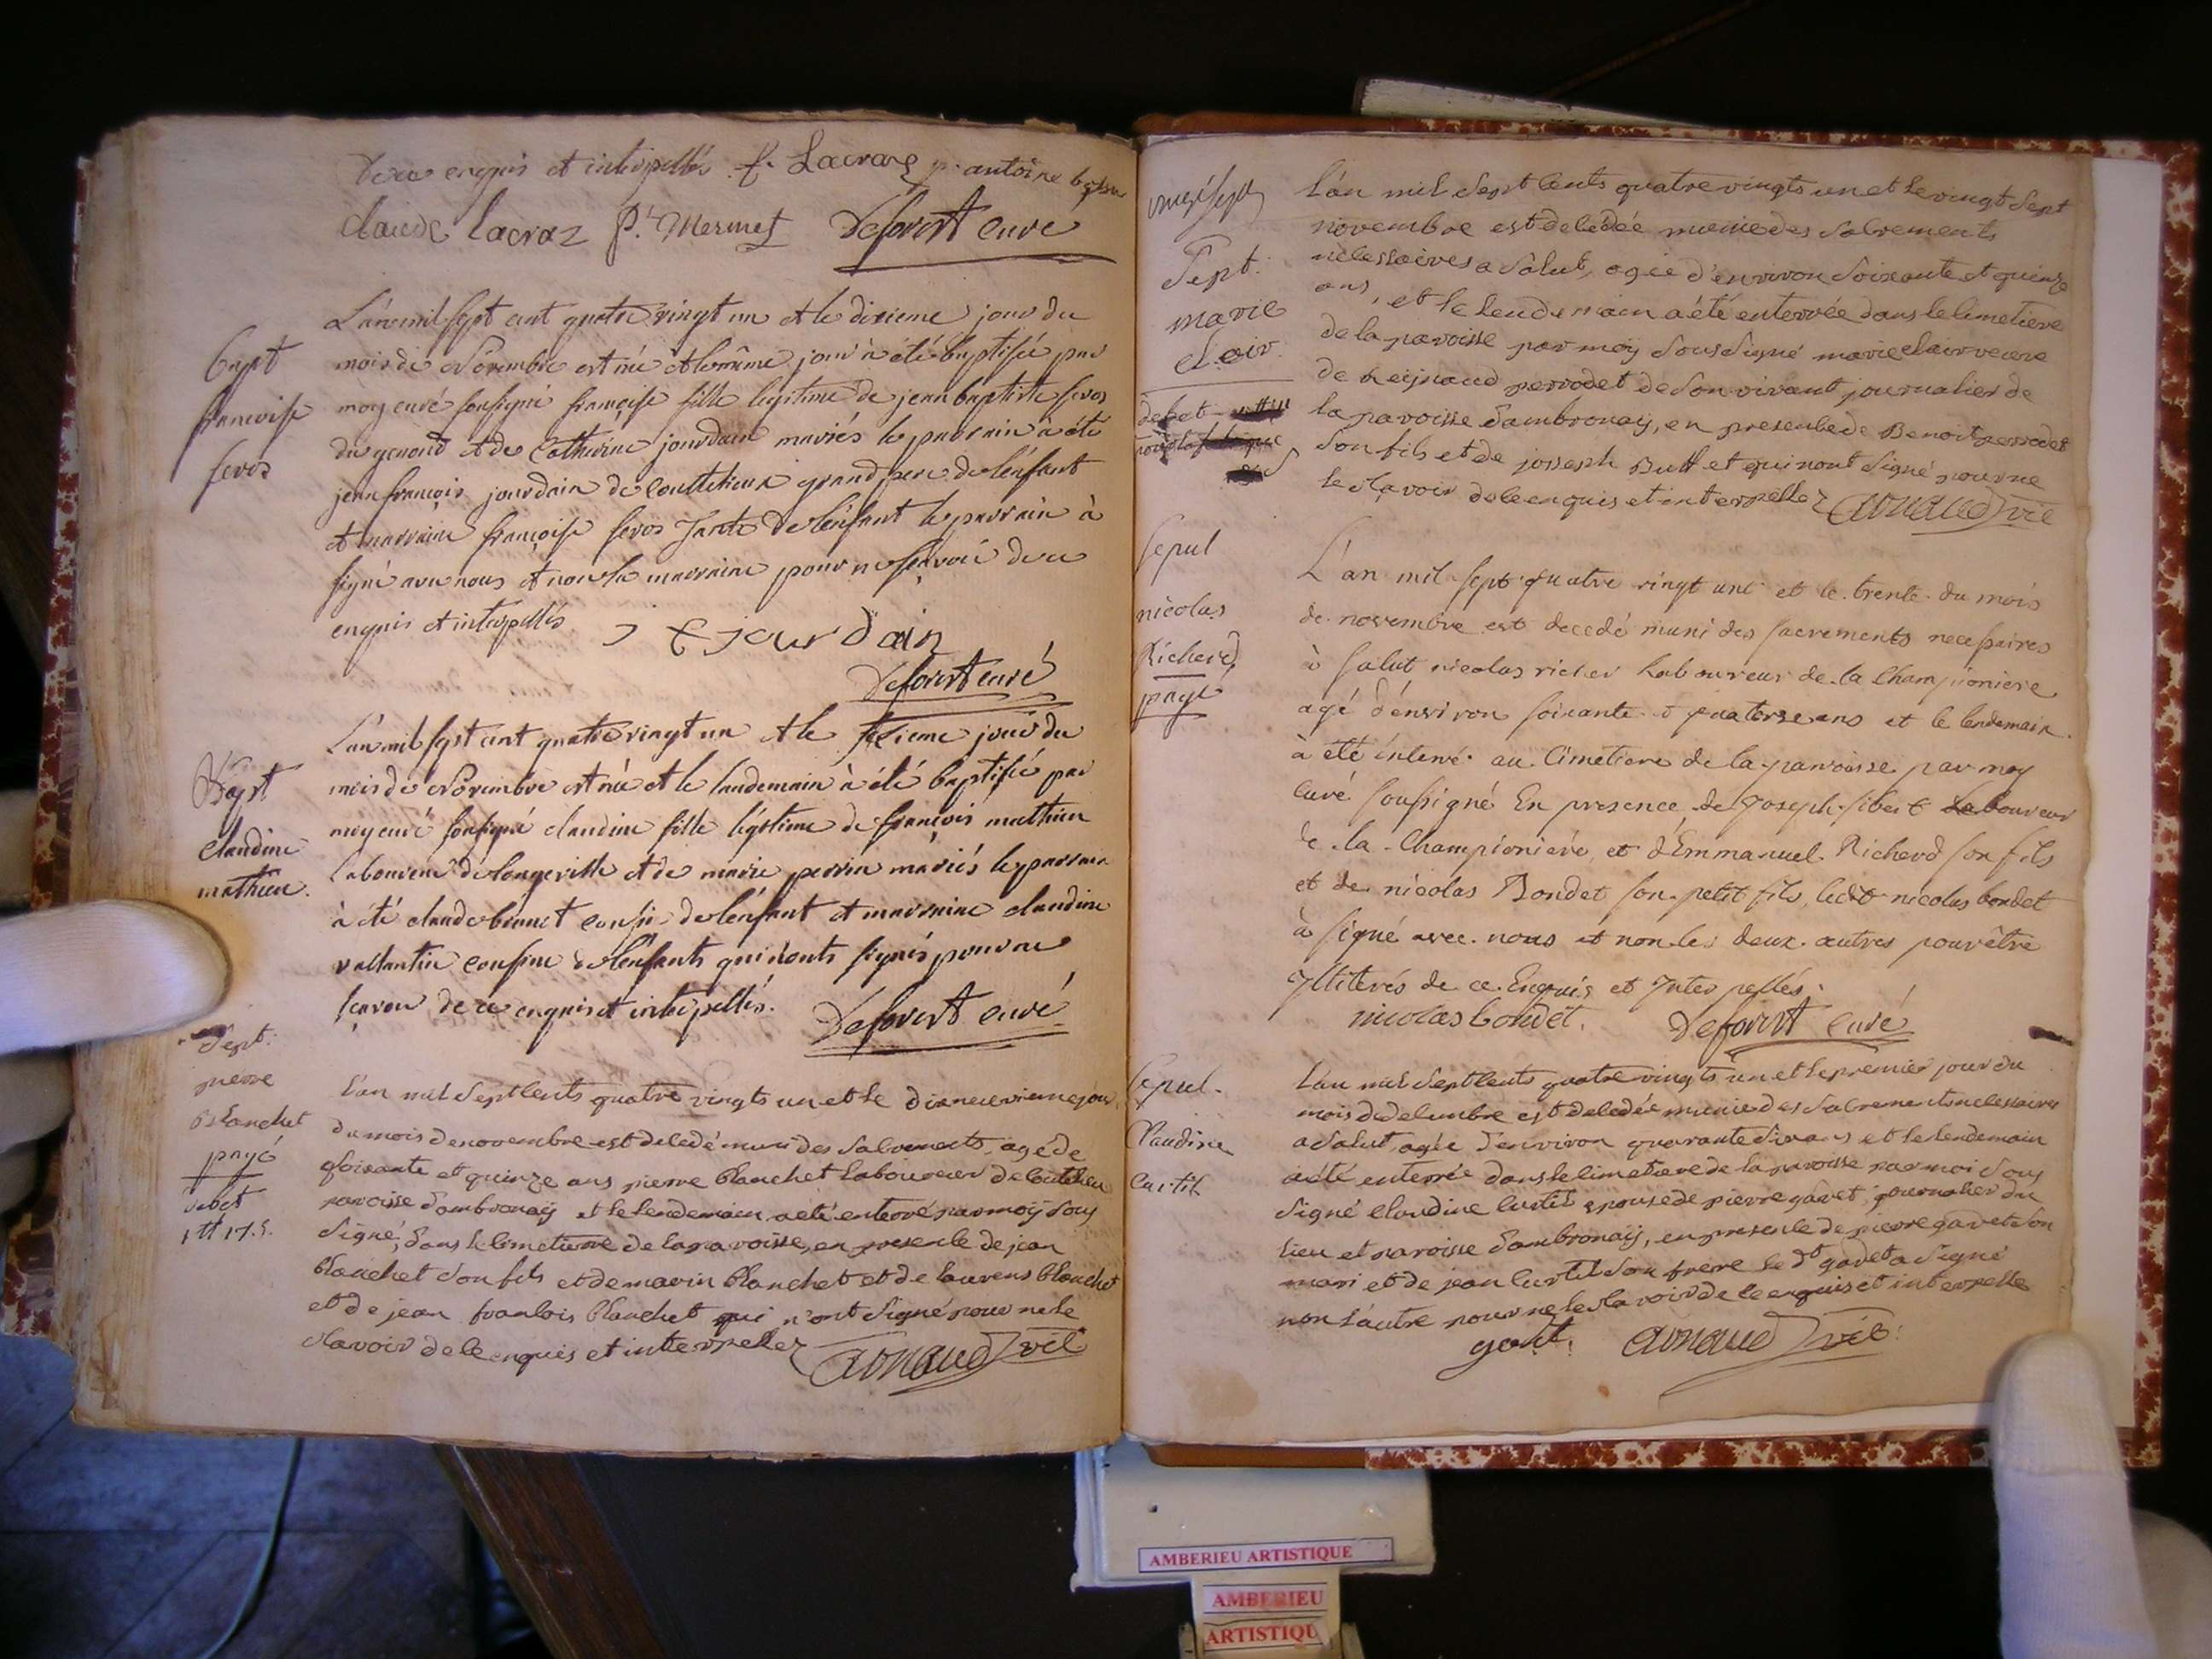 de ce enquis et interpellés. f. Lacraz p. antoine
claude lacraz p. Mermet Deforest curé
Bapt
francoise
feros
L'an mil sept cent quatre vingt un et le dixieme jour du
mois de Novembre est née et le même jour à été baptisée par
moy curé soussigné françoise fille legitime de jean baptiste feros
du genoud et de Catherine jourdain mariés le parrain à été
jean françois jourdain de Couttelieux grand pere de l'enfant
et marraine françoise feros Tante de l'enfant le parrain à
signé avec nous et non la marraine pour ne sçavoir de ce
enquis et interpellés
jourdain
Deforest curé
Bapt
Claudine
mathieu.
L'an mil sept cent quatre vingt un et le seizieme jour du
mois de Novembre est née et le landemain à été baptisée par
moy curé soussigné claudine fille légitime de françois mathieu
laboureur de longeville et de marie perrin mariés le parrain
à été claude brunet cousin de l'enfant et marraine claudine
vallantin cousine de l'enfants qui n'onts signés pour ne
sçavoir de ce enquis et interpellés.
Deforest curé
Sept:
pierre
Blanchet
payé
debet
1 tt 17 s.
L'an mil sept cents quatre vingts un et le dixneuvieme jour
du mois de novembre est decedé muni des sacrements, agé de
soixante et quinze ans pierre Blanchet laboureur de coutelieu
paroisse d'ambronay et le lendemain a été enterré par moy sous
signé, dans le cimetierre de la paroisse, en presence de jean
Blanchet son fils et de marin Blanchet et de laurens Blanchet
et de jean francois Blanchet qui n'ont signé pour ne le
sçavoir de ce enquis et interpellez Arnaud vic
Sept:
marie
clair.
debet
L'an mil sept cents quatre vingts un et le vingt sept
novembre est decedée munie des sacrements
necessaires a salut, agée d'environ soixante et quinze
ans, et le lendemain a été enterrée dans le cimetiere
de la paroisse par moy soussigné marie clair veuve
de Reignaud perrodet de son vivant journalier de
la paroisse d'ambronay, en presence de Benoit perrodet
son fils et de josseph Buttet qui n'ont signé pour ne
le sçavoir de ce enquis et interpellez Arnaud vic
sepul
nicolas
Richerd,
payé
L'an mil sept quatre vingt une et le trente du mois
de novembre est decedé muni des sacrements necessaires
à salut nicolas richer Laboureur de la Championiere
agé d'environ soixante et quatorse ans et le lendemain
à été enterré au Cimetiere de la parroisse par moy
curé soussigné En presence de Joseph sibert Laboureur
de la Championiére et d'Emmanuel Richerd son fils
et de nicolas Bondet son petit fils, ledit nicolas bondet
à signé avec nous et non les deux autres pour être
Illiterés de ce Enquis et Interpellés.
nicolas bondet. Deforest curé
sepul.
Claudine
Curtil
L'an mil sept cents quatre vingts un et le premier jour du
mois de decembre est decedée munie des sacrements necessaires
a salut, agée d'environ quarante six ans et le lendemain
a été enterrée dans le cimetiere de la paroisse par moi sous
signé claudine curtil epouse de pierre gavet journalier du
lieu et paroisse d'ambronay, en presence de pierre gavet son
mari et de jean curtil son frere le dt gavet a signé
non l'autre pour ne le sçavoir de ce enquis et interpelle
Arnaud vic:
AMBERIEU ARTISTIQUE
AMBERIEU
ARTISTIQU